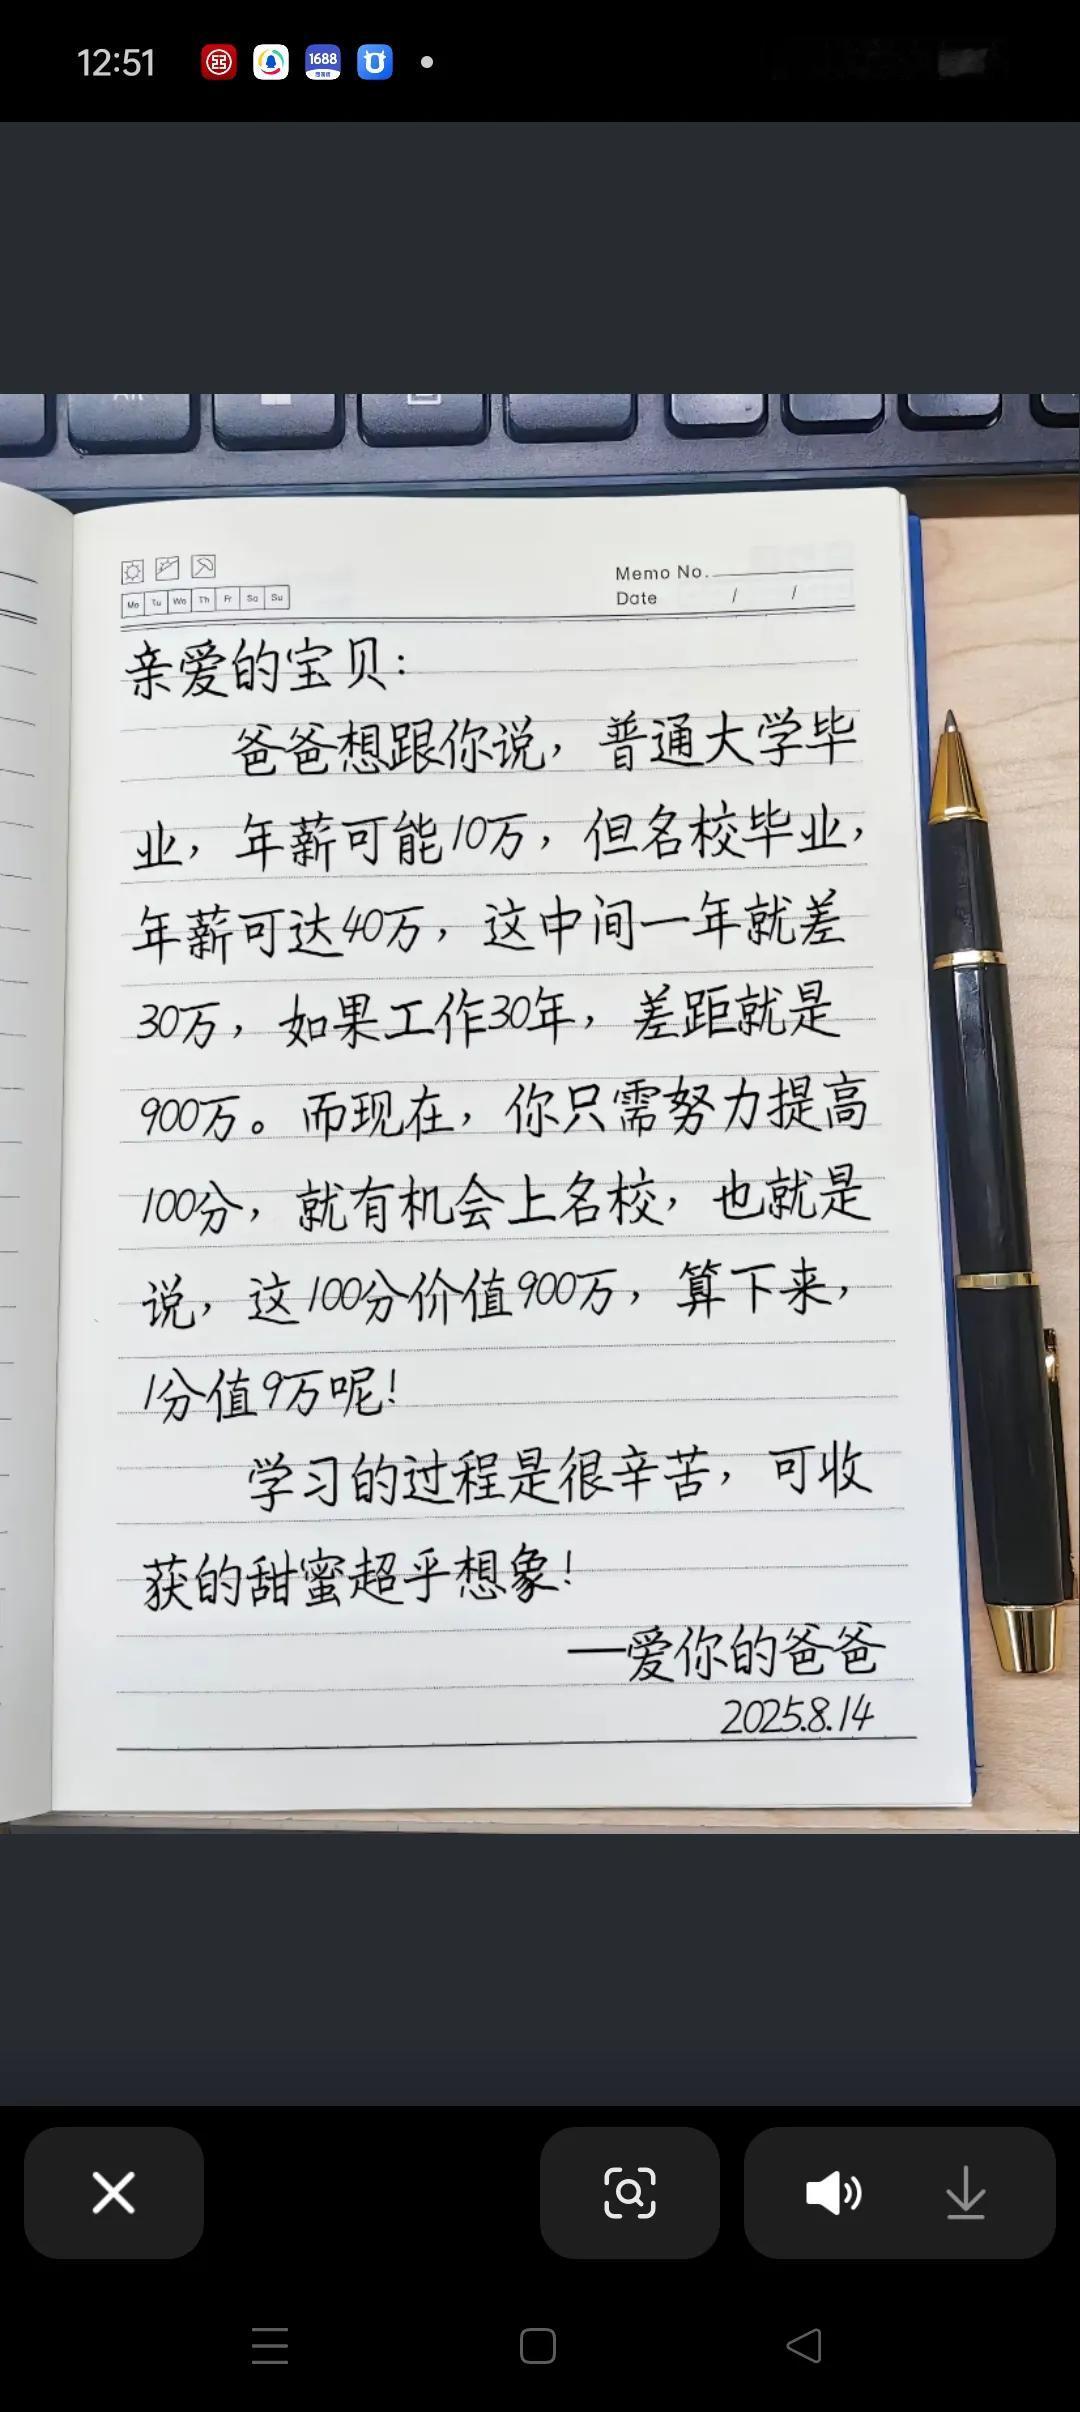 12:51
1688
Alt
Memo No.
Mo Tu We Th Fr Sa Su
Date / /
亲爱的宝贝：
爸爸想跟你说，普通大学毕
业，年薪可能10万，但名校毕业，
年薪可达40万，这中间一年就差
30万，如果工作30年，差距就是
900万。而现在，你只需努力提高
100分，就有机会上名校，也就是
说，这100分价值900万，算下来，
1分值9万呢！
学习的过程是很辛苦，可收
获的甜蜜超乎想象！
—爱你的爸爸
2025.8.14